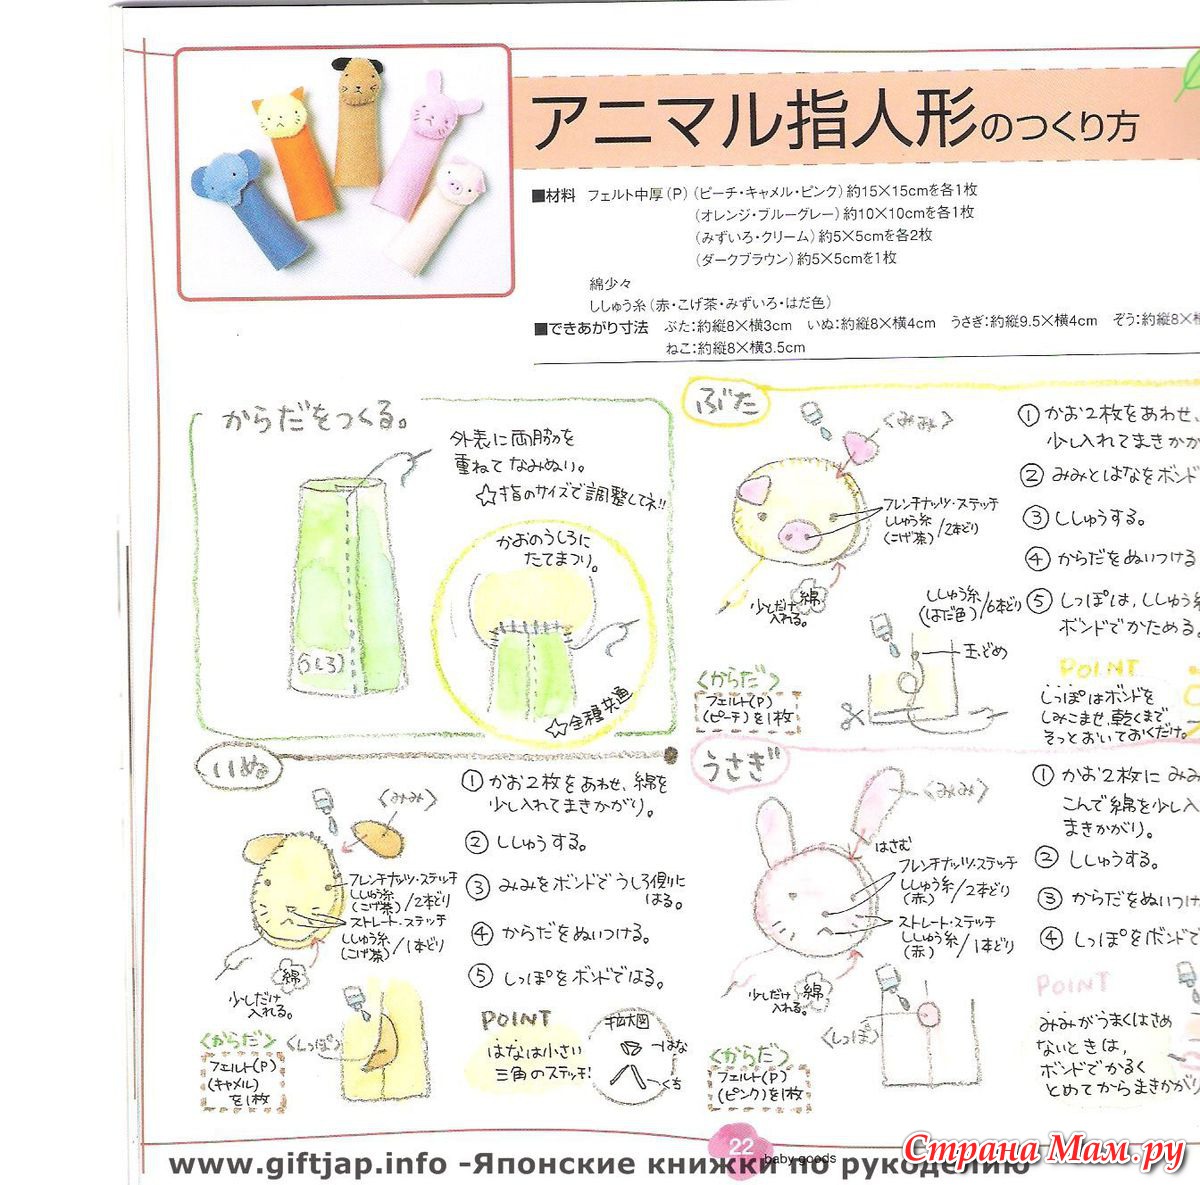 アニマル指人形のつくり方
■材料 フェルト中厚(P)(ピーチ・キャメル・ピンク)約15×15cmを各1枚
(オレンジ・ブルーグレー)約10×10cmを各1枚
(みずいろ・クリーム)約5×5cmを各2枚
(ダークブラウン)約5×5cmを1枚
綿少々
ししゅう糸(赤・こげ茶・みずいろ・はだ色)
■できあがり寸法 ぶた:約縦8×横3cm いぬ:約縦8×横4cm うさぎ:約縦9.5×横4cm ぞう:約縦8×横
ねこ:約縦8×横3.5cm
からだをつくる。
外表に両脇を
重ねてなみぬい。
☆指のサイズで調整してネ!!
うしろ
かおのうしろに
たてまつり。
☆全種共通
ぶた
<みみ>
フレンチナッツ・ステッチ
ししゅう糸
(こげ茶)/2本どり
少しだけ
入れる。
綿
①かお2枚をあわせ、
少し入れてまきかが
②みみとはなをボンド
③ししゅうする。
④からだをぬいつける
⑤しっぽは、ししゅう糸
ボンドでかためる。
ししゅう糸
(はだ色)/6本どり
玉どめ
<からだ>
フェルト(P)
(ピーチ)を1枚
POINT
しっぽはボンドを
しみこませ、乾くまで
そっとおいておくだけ。
いぬ
<みみ>
フレンチナッツ・ステッチ
ししゅう糸
(こげ茶)/2本どり
ストレート・ステッチ
ししゅう糸
(こげ茶)/1本どり
綿
少しだけ
入れる。
①かお2枚をあわせ、綿を
少し入れてまきかがり。
②ししゅうする。
③みみをボンドでうしろ側に
はる。
④からだをぬいつける。
⑤しっぽをボンドではる。
<からだ>
フェルト(P)
(キャメル)
を1枚
<しっぽ>
POINT
はなは小さい
三角のステッチ!
拡大図
はな
くち
うさぎ
<みみ>
はさむ
フレンチナッツ・ステッチ
ししゅう糸
(赤)/2本どり
ストレート・ステッチ
ししゅう糸
(赤)/1本どり
少しだけ
入れる。
綿
①かお2枚にみみ
こんで綿を少し入
まきかがり。
②ししゅうする。
③からだをぬいつけ
④しっぽをボンドで
<しっぽ>
<からだ>
フェルト(P)
(ピンク)を1枚
POINT
みみがうまくはさめ
ないときは、
ボンドでかるく
とめてからまきかがり
22
baby goods
www.giftjap.info -Японские книжки по рукоделию
Страна Мам.ру